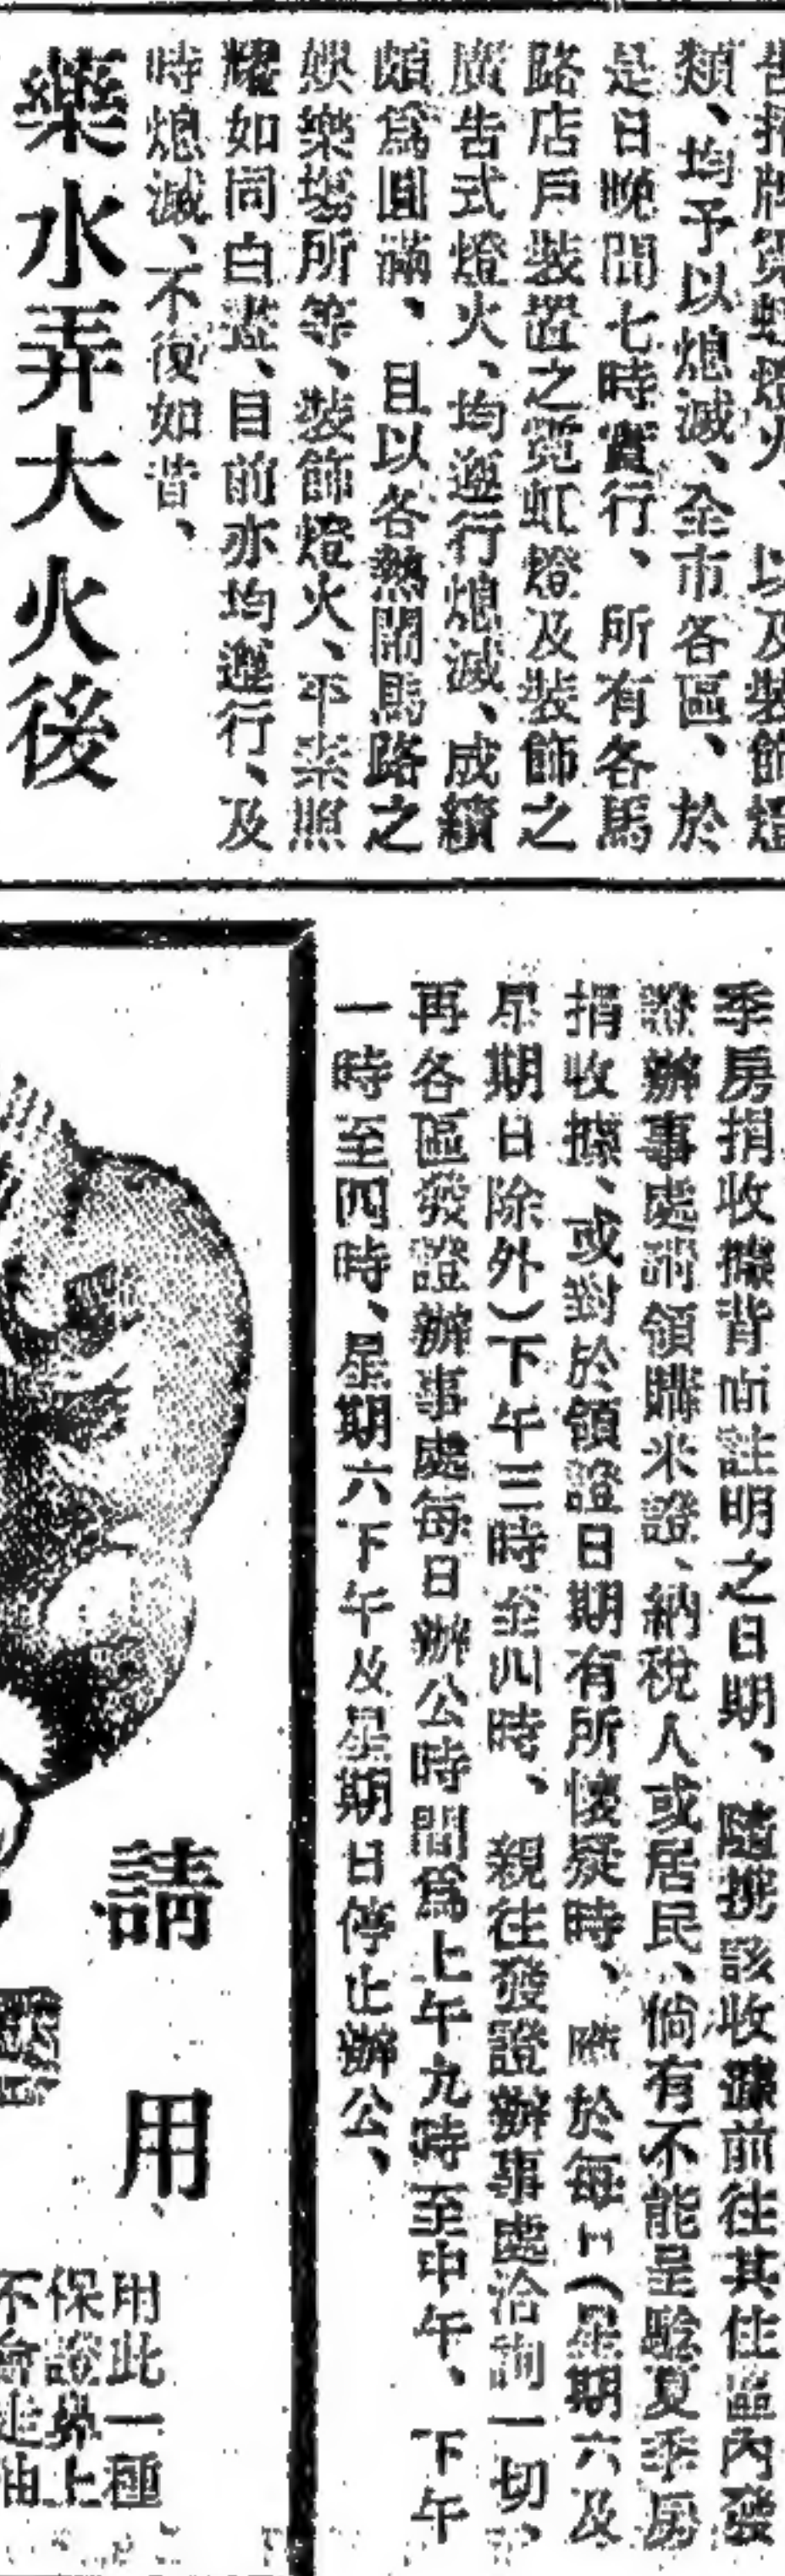 告招牌霓虹燈火、以及裝飾燈
類、均予以熄滅、全市各區、於
是日晚間七時實行、所有各馬
路店戶裝置之霓虹燈及裝飾之
廣告式燈火、均遵行熄滅、成績
頗爲圓滿、且以各熱鬧馬路之
娛樂場所等、裝飾燈火、平素照
耀如同白晝、目前亦均遵行、及
時熄滅、不復如昔、
藥水弄大火後
季房捐收據背面註明之日期、隨携該收據前往其住區內發
證辦事處請領購米證、納稅人或居民、倘有不能呈驗夏季房
捐收據、或對於領證日期有所懷疑時、應於每日(星期六及
星期日除外)下午三時至四時、親往發證辦事處洽詢一切、
再各區發證辦事處每日辦公時間爲上午九時至中午、下午
一時至四時、星期六下午及星期日停止辦公、
請用
用此一種
保證